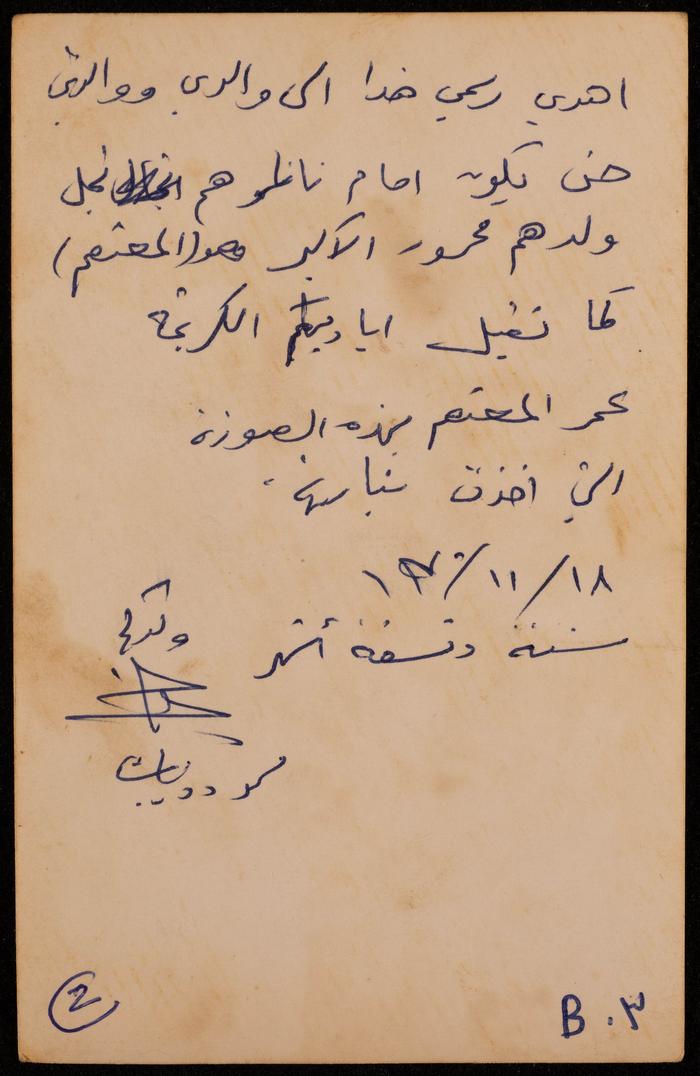 اهدي رسمي هذا الى والدي ووالدتي
حتى يكون امام ناظرهم نجل
ولدهم محمود الأكبر وهو (المعتصم)
كما تقبل اياديكم الكريمة
عمر المعتصم بهذه الصورة
التي اخذت
١٨/١١/
سنة وتسعة أشهر
ولدكم
محمود دياب
2
B.٣